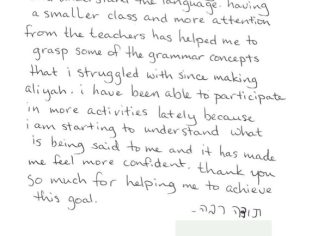 understand the language. having
a smaller class and more attention
from the teachers has helped me to
grasp some of the grammar concepts
that i struggled with since making
aliyah. i have been able to participate
in more activities lately because
i am starting to understand what
is being said to me and it has made
me feel more confident. thank you
so much for helping me to achieve
this goal.
תודה רבה-